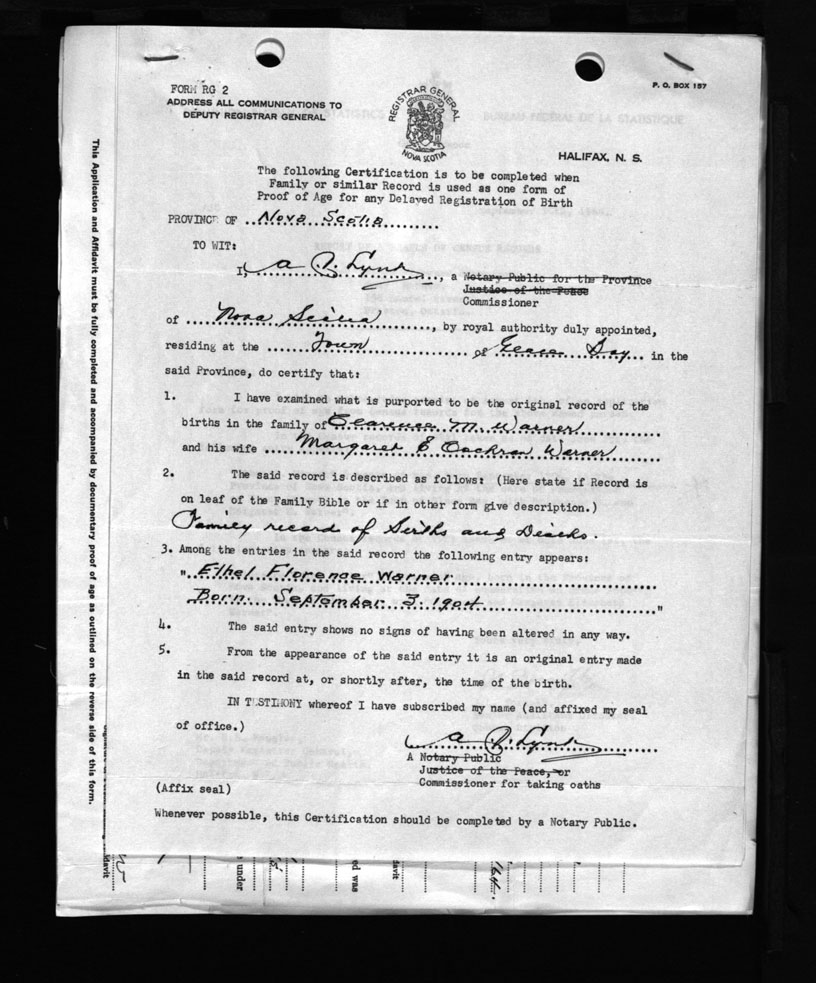 FORM RG 2
ADDRESS ALL COMMUNICATIONS TO
DEPUTY REGISTRAR GENERAL
REGISTRAR GENERAL
NOVA SCOTIA
P. O. BOX 157
HALIFAX, N. S.
BUREAU FEDERAL DE LA STATISTIQUE
The following Certification is to be completed when
Family or similar Record is used as one form of
Proof of Age for any Delayed Registration of Birth
PROVINCE OF Nova Scotia
TO WIT:
I, A , a Notary Public for the Province
Justice of the Peace
Commissioner
of Nova Scotia, by royal authority duly appointed,
residing at the Town of Glace Bay in the
said Province, do certify that:
1. I have examined what is purported to be the original record of the
births in the family of Clarence M. Warner
and his wife Margaret E Cochran Warner
2. The said record is described as follows: (Here state if Record is
on leaf of the Family Bible or if in other form give description.)
Family record of Births and Deaths.
3. Among the entries in the said record the following entry appears:
" Ethel Florence Warner
Born September 3. 1904 "
4. The said entry shows no signs of having been altered in any way.
5. From the appearance of the said entry it is an original entry made
in the said record at, or shortly after, the time of the birth.
IN TESTIMONY whereof I have subscribed my name (and affixed my seal
of office.)
A Notary Public
Justice of the Peace, or
Commissioner for taking oaths
(Affix seal)
Whenever possible, this Certification should be completed by a Notary Public.
This Application and Affidavit must be fully completed and accompanied by documentary proof of age as outlined on the reverse side of this form.
under
ed was